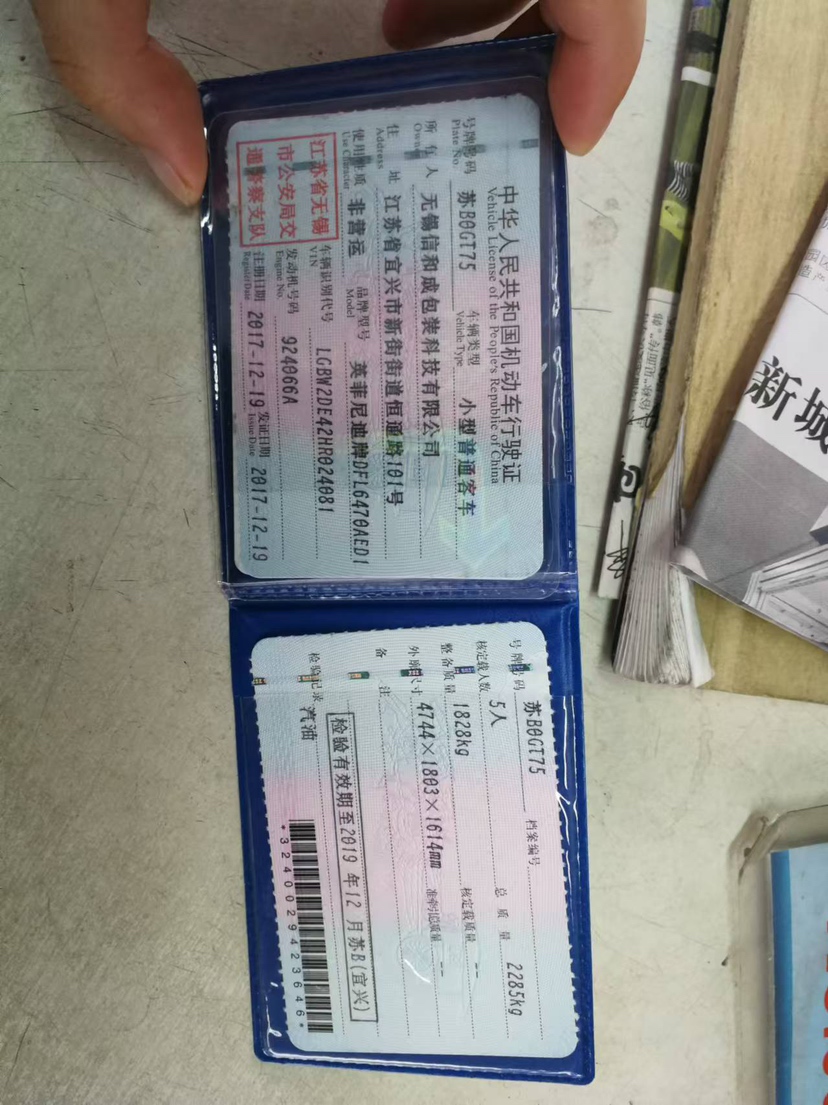 中华人民共和国机动车行驶证
Vehicle License of the People's Republic of China
号牌号码 苏B0GT75 车辆类型 小型普通客车
Plate No. Vehicle Type
所有人 无锡信和成包装科技有限公司
Owner
住址 江苏省宜兴市新街街道恒通路101号
Address
使用性质 非营运 品牌型号 英菲尼迪牌DFL6470AED1
Use Character Model
江苏省无锡
市公安局交
通警察支队
车辆识别代号 LGBW2DE42HR024081
VIN
发动机号码 924066A
Engine No.
注册日期 2017-12-19 发证日期 2017-12-19
Register Date Issue Date
号牌号码 苏B0GT75 档案编号
核定载人数 5人 总质量 2285kg
整备质量 1828kg 核定载质量 --
外廓尺寸 4744×1803×1614mm 准牵引总质量 --
备注
检验有效期至2019年12月苏B(宜兴)
检验记录 汽油
*3240029423646*
新城